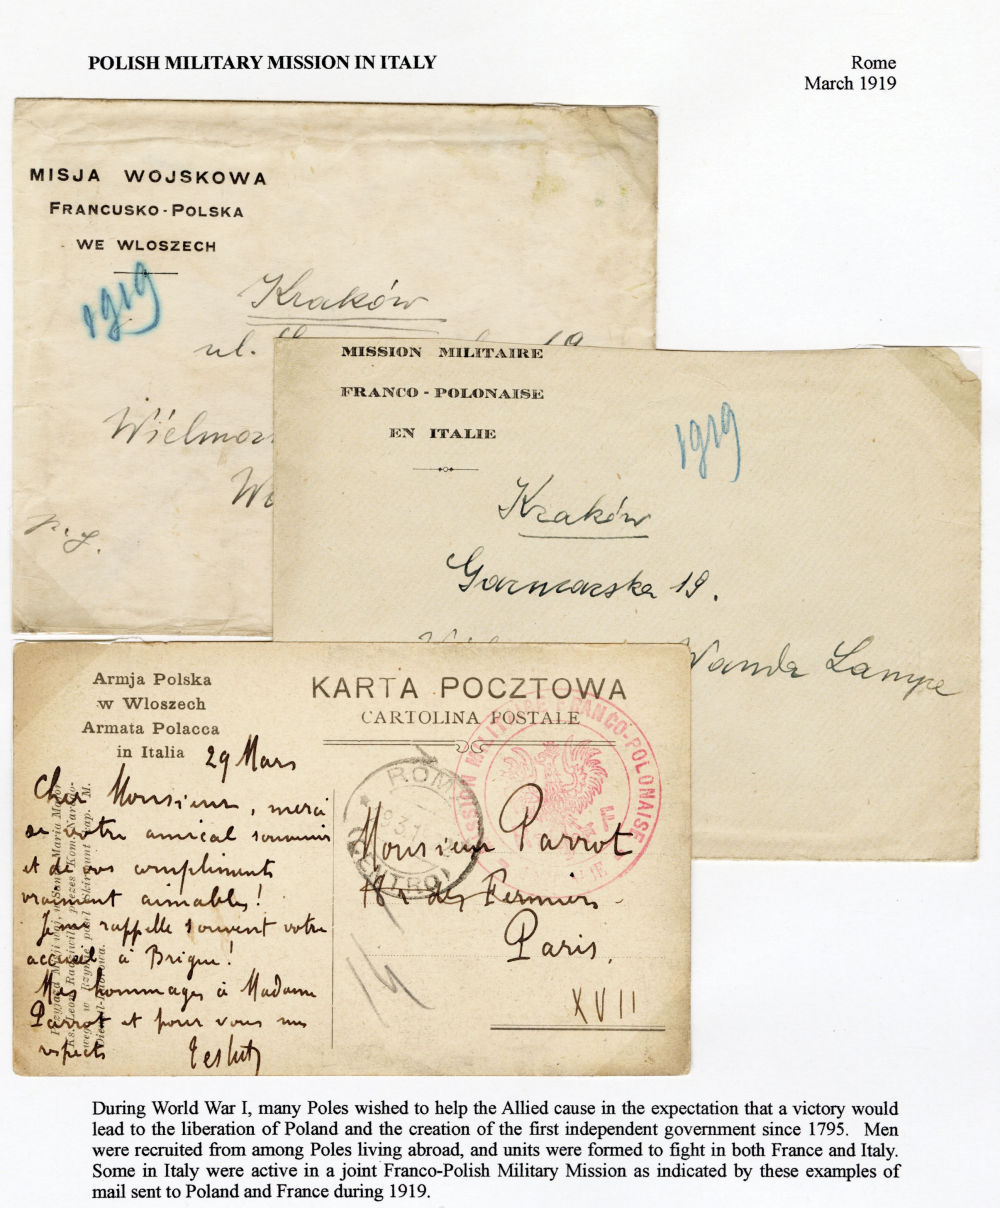 POLISH MILITARY MISSION IN ITALY
Rome
March 1919
MISJA WOJSKOWA
FRANCUSKO-POLSKA
WE WLOSZECH
1919
Kraków
ul. 19
P. L.
MISSION MILITAIRE
FRANCO - POLONAISE
EN ITALIE
1919
Kraków
Garncarska 19.
Wanda Lampe
Armja Polska
w Wloszech
Armata Polacca
in Italia
KARTA POCZTOWA
CARTOLINA POSTALE
MISSION MILITAIRE FRANCO-POLONAISE
ROMA
29 Mars
Cher Monsieur, merci
de votre amical souvenir
et de vos compliments
vraiment aimables!
Je me rappelle souvent votre
accueil à Brigue!
Mes hommages à Madame
Parrot et pour vous mes
respects
Monsieur Parrot
18 r. des Fermiers
Paris.
XVII
14
During World War I, many Poles wished to help the Allied cause in the expectation that a victory would
lead to the liberation of Poland and the creation of the first independent government since 1795. Men
were recruited from among Poles living abroad, and units were formed to fight in both France and Italy.
Some in Italy were active in a joint Franco-Polish Military Mission as indicated by these examples of
mail sent to Poland and France during 1919.